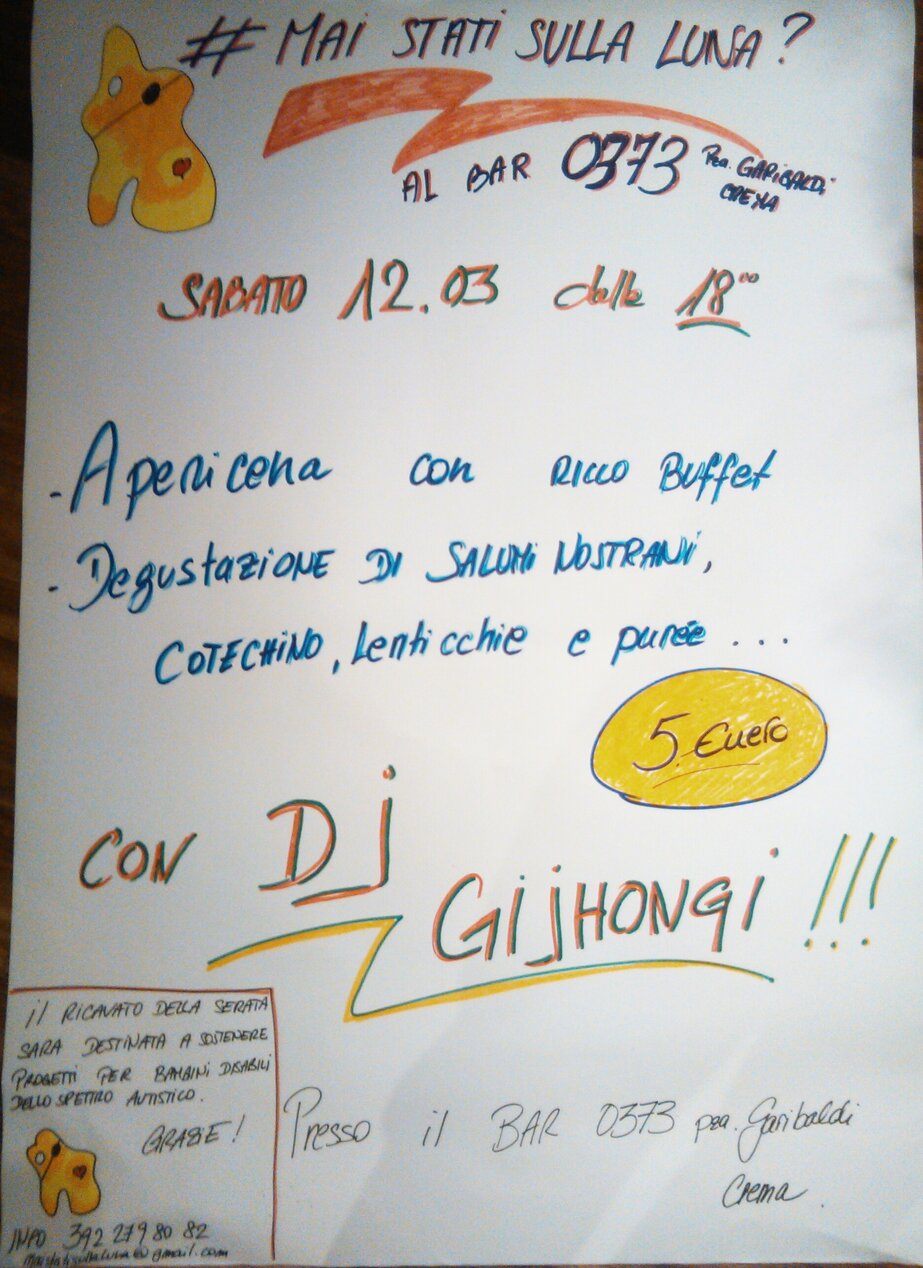 # MAI STATI SULLA LUNA?
AL BAR 0373 Pza. GARIBALDI
CREMA
SABATO 12.03 dalle 18°°
- Apericena con RICCO Buffet
- Degustazione DI SALUMI NOSTRANI,
COTECHINO, Lenticchie e purée ...
5 Euero
CON Dj
GijHONGi !!!
il RICAVATO DELLA SERATA
SARA DESTINATA A SOSTENERE
PROGETTI PER BAMBINI DISABILI
DELLO SPETTRO AUTISTICO.
GRAZIE!
Presso il BAR 0373 pza. Garibaldi
Crema
INFO 392 279 80 82
Maistatisullaluna@gmail.com